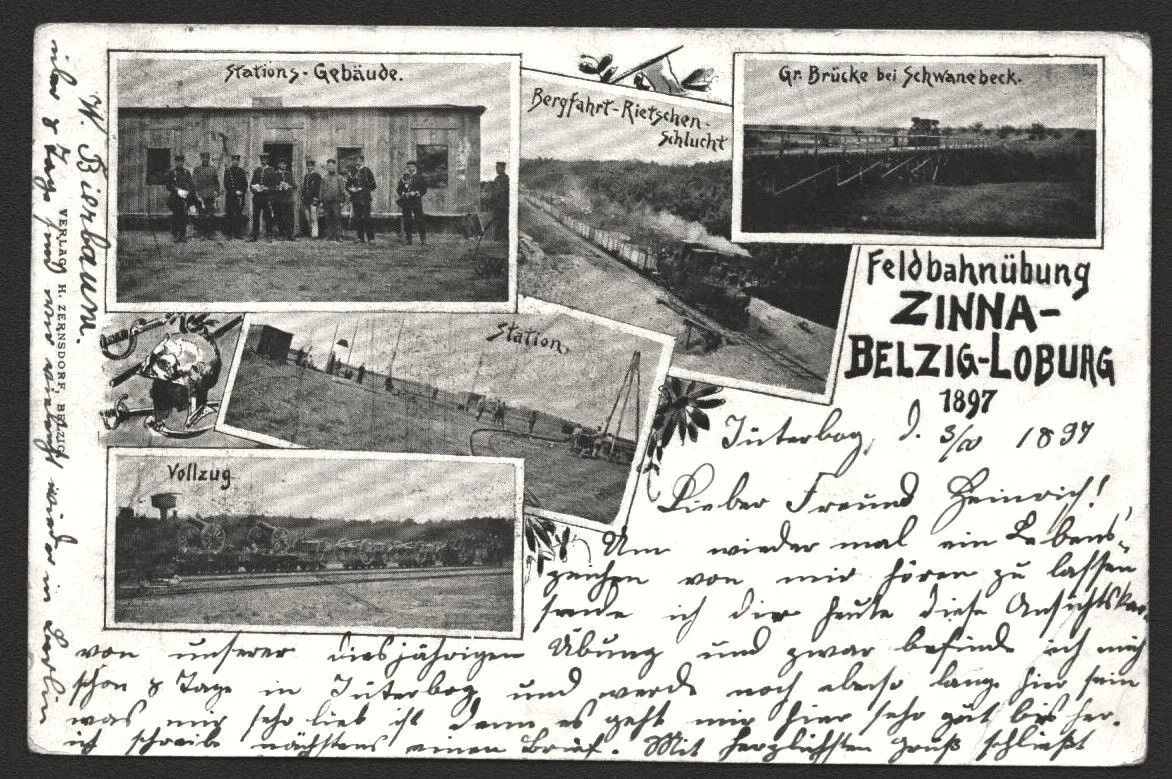 Stations-Gebäude.
Bergfahrt-Rietschen-
Schlucht
Gr. Brücke bei Schwanebeck.
Feldbahnübung
ZINNA-
BELZIG-LOBURG
1897
Station.
Vollzug
VERLAG H. ZERNSDORF, BELZIG
Jüterbog, d. 3/ 1897
Lieber Freund Heinrich!
Um wieder mal ein Lebens-
zeichen von mir hören zu lassen
sende ich dir heute diese Ansichtskar.
von unserer diesjährigen Übung und zwar befinde ich mich
schon 8 Tage in Jüterbog und werde noch ebenso lange hier sein
was mir sehr lieb ist denn es geht mir hier sehr gut bis her.
ich schreibe nächstens einen Brief. Mit herzlichsten Gruß schließt
W. Bierbaum.
8 Tage sind wir wieder in Berlin